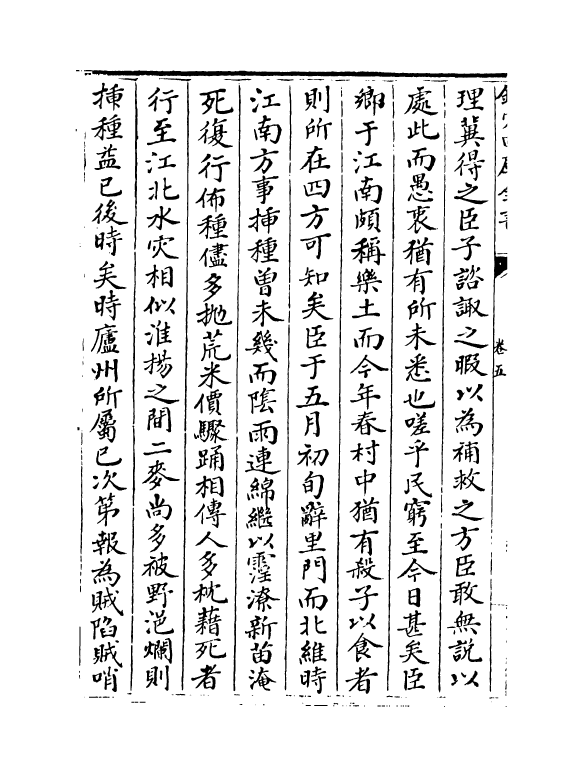 欽定四庫全書
卷五
理冀得之臣子諮諏之暇以為補救之方臣敢無説以
處此而愚衷猶有所未悉也嗟乎民窮至今日甚矣臣
鄉于江南頗稱樂土而今年春村中猶有殺子以食者
則所在四方可知矣臣于五月初旬辭里門而北維時
江南方事揷種曾未幾而陰雨連綿繼以霪潦新苗淹
死復行佈種儘多抛荒米價驟踊相傳人多枕藉死者
行至江北水灾相似淮揚之間二麥尚多被野浥爛則
揷種益已後時矣時廬州所屬已次第報為賊陷賊哨